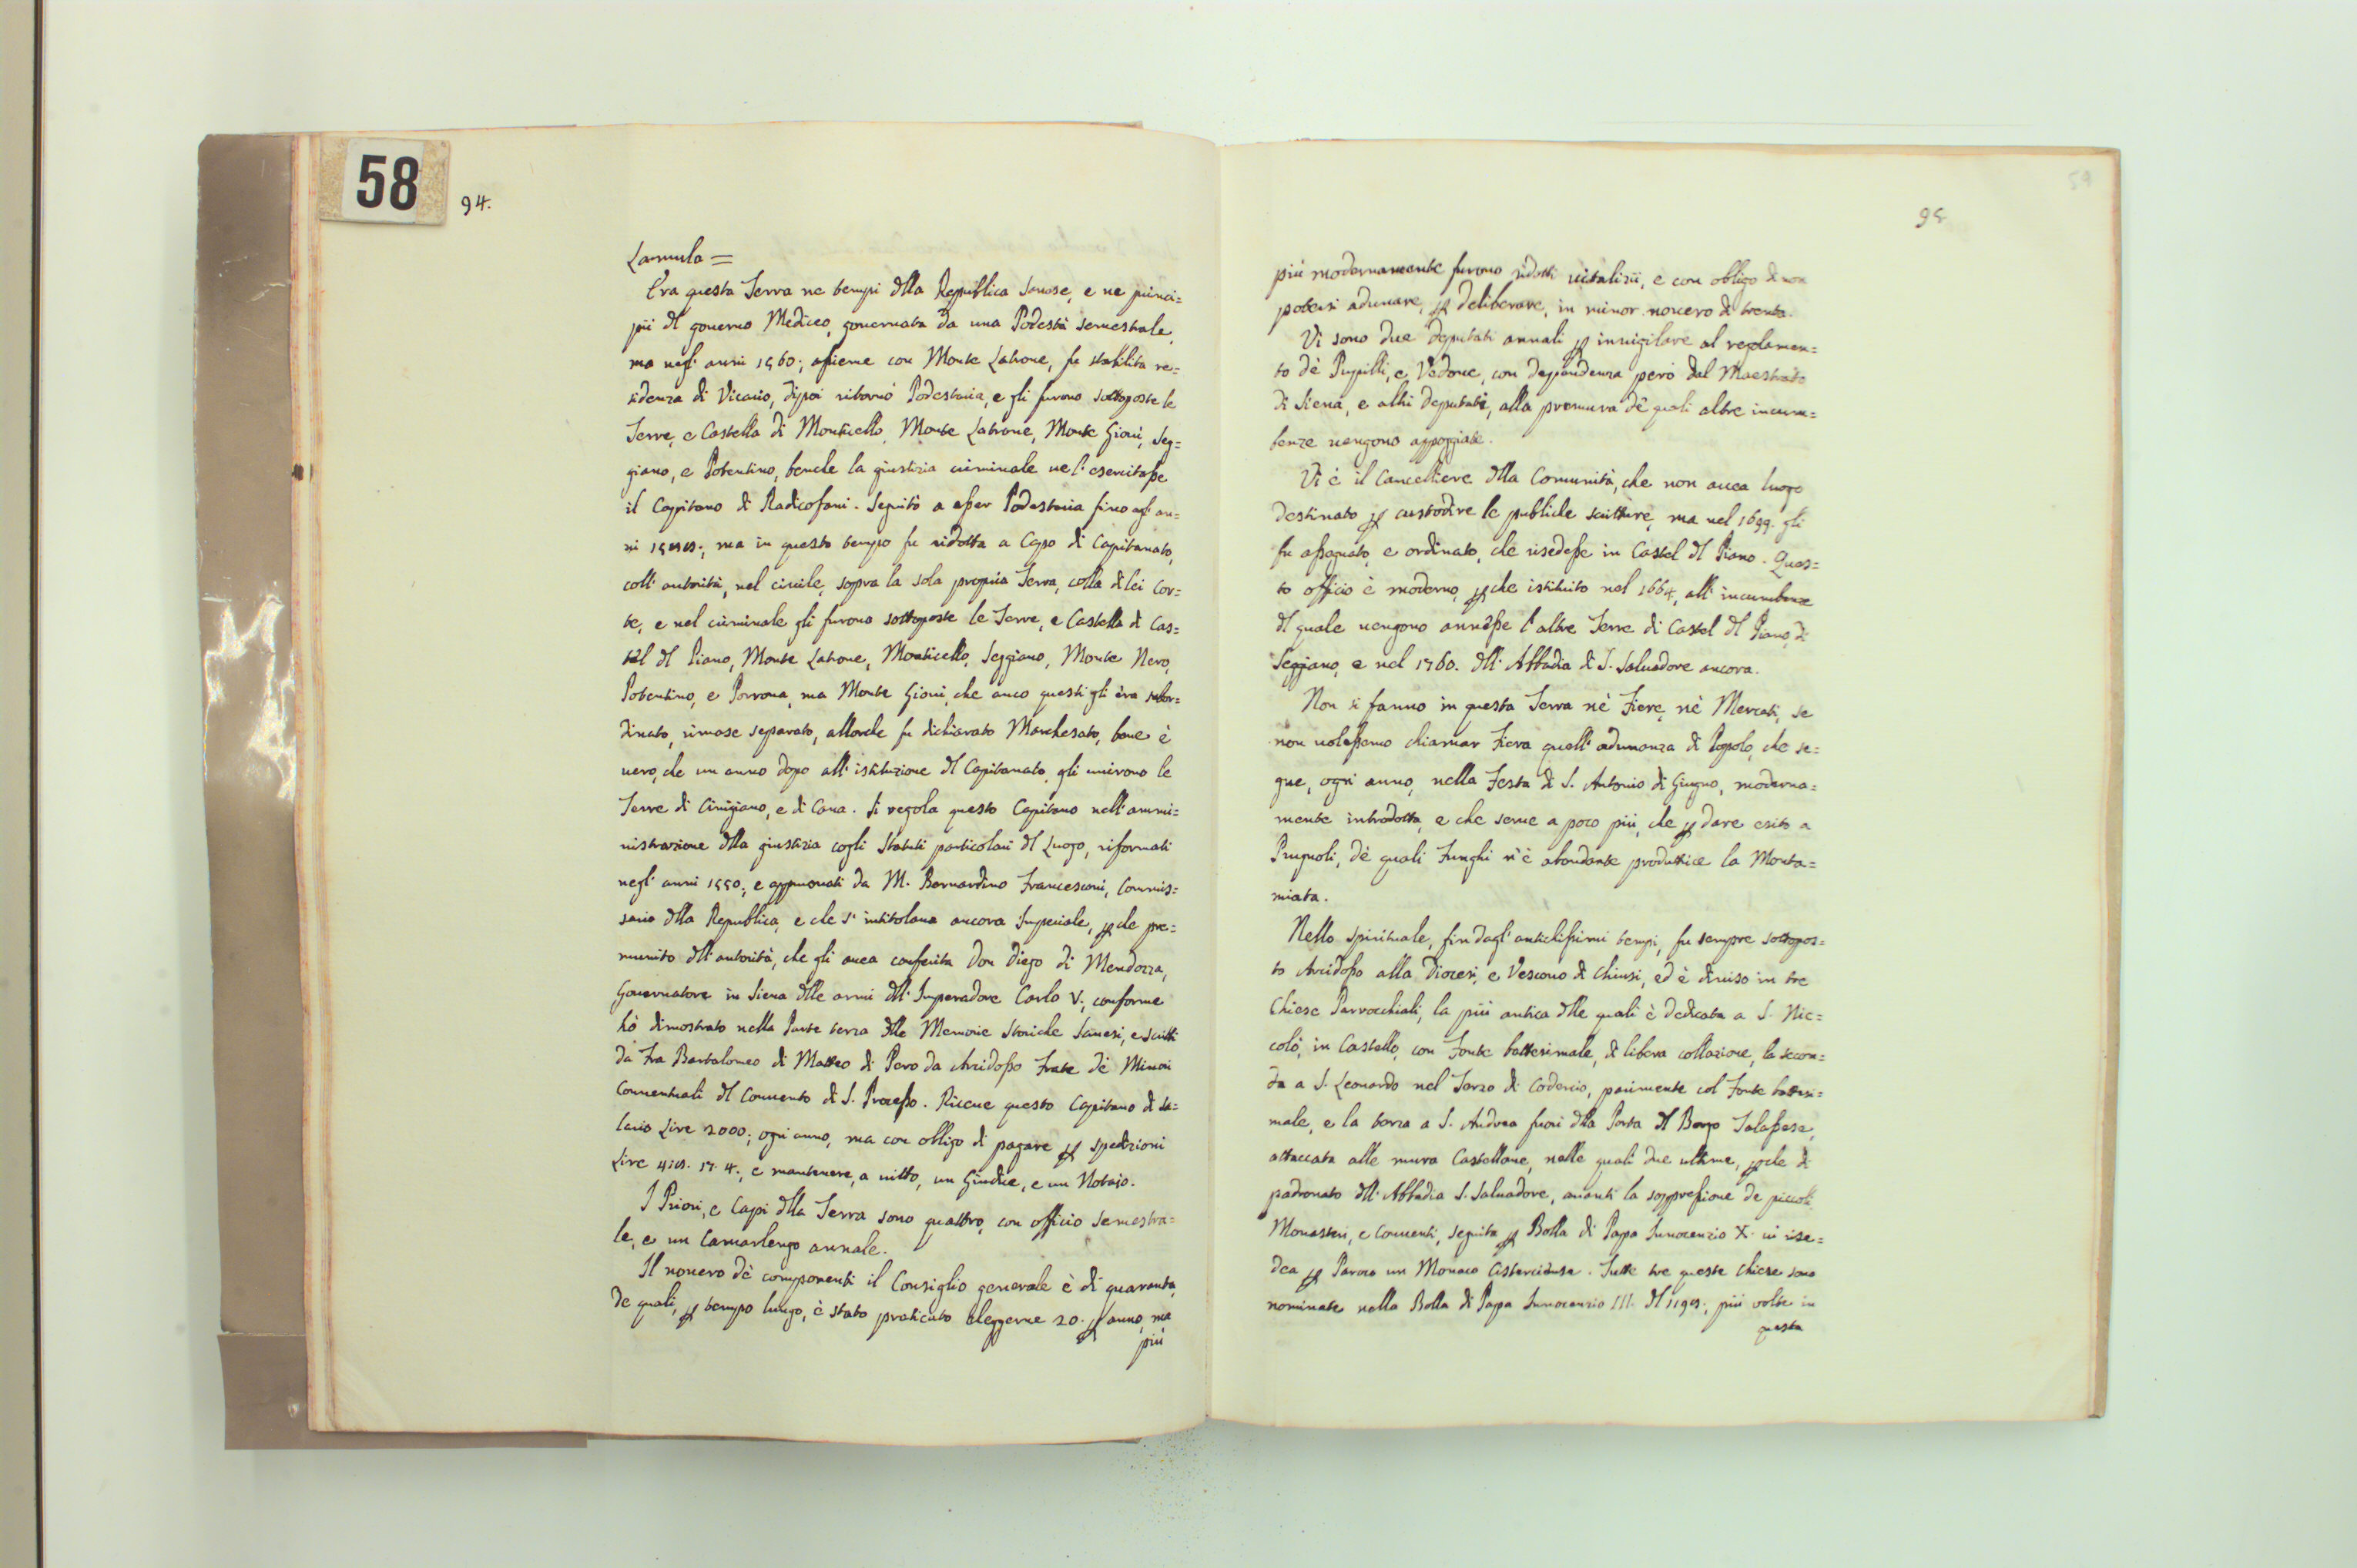 58
94.
Lamula =
Era questa Terra ne tempi dlla Republica Sanese, e ne princi=
pii dl governo Mediceo, governata da una Podestà semestrale,
ma negl' anni 1560; assieme con Monte Latrone, fu stabilita re=
sidenza di Vicario, dipoi ritornò Podestaria, e gli furono sottoposte le
Terre, e Castella di Monticello, Monte Latrone, Monte Giovi, Seg=
giano, e Potentino, benche la giustizia criminale ne l' esercitasse
il Capitano di Radicofani. Seguitò a esser Podestaria fino agl' an=
ni ma in questo tempo fu ridotta a Capo di Capitanato,
coll' autorità, nel civile, sopra la sola propria Terra, colla di lei Cor=
te, e nel criminale gli furono sottoposte le Terre, e Castella di Cas=
tel dl Piano, Monte Latrone, Monticello, Seggiano, Monte Nero,
Potentino, e Porrona, ma Monte Giovi, che anco questi gli èra subor=
dinato, rimase separato, allorche fu dichiarato Marchesato, bene è
vero, che un anno dopo all' istituzione dl Capitanato, gli unirono le
Terre di Cinigiano, e di Cana. Si regola questo Capitano nell' ammi=
nistrazione dlla giustizia cogli Statuti particolari dl Luogo, riformati
negl' anni 1550; e approvati da M. Bernardino Francesconi, Commis=
sario dlla Republica, e che s' intitolava ancora Imperiale, pche pre=
munito dll' autorità, che gli avea conferita Don Diego di Mendozza,
Governatore in Siena dlle armi dll' Imperadore Carlo V; conforme
hò dimostrato nella Parte terza dlle Memorie Storiche Sanesi, e scritti
da Fra Bartolomeo di Matteo di Pero da Arcidosso Frate dè Minori
Conventuali dl Convento di S. Processo. Riceve questo Capitano di sa=
lario Lire 2000; ogni anno, ma con obligo di pagare p spedizioni
Lire e mantenere, a vitto, un Giudice, e un Notaio.
I Priori, e Capi dlla Terra sono quattro, con officio semestra=
le, e un Camarlengo annale.
Il novero dè componenti il Consiglio generale è di quaranta,
de quali, p tempo lungo, è stato praticato eleggerne 20. p anno, ma
più
59
95
più modernamente furono ridotti vitalizii, e con obligo di non
potersi adunare, p deliberare, in minor novero di trenta.
Vi sono due deputati annali p invigilare al regolamen=
to dè Pupilli, e Vedove, con dependenza però dal Maestrato
di Siena, e altri deputati, alla premura dè quali altre incum=
benze vengono appoggiate.
Vi è il Cancelliere dlla Comunità, che non avea luogo
destinato p custodire le publiche scritture, ma nel 1699. gli
fu assegnato, e ordinato, che risedesse in Castel dl Piano. Ques=
to officio è moderno, pche istituito nel 1664, all' incumbenze
dl quale vengono annèsse l' altre Terre di Castel dl Piano, di
Seggiano, e nel 1760. dll' Abbadia di S. Salvadore ancora.
Non si fanno in questa Terra nè Fiere, nè Mercati, se
non volessemo chiamar Fiera quell' adunanza di Popolo, che se=
gue, ogni anno, nella Festa di S. Antonio di Giugno, moderna=
mente introdotta, e che serve a poco più, che p dare esito a
Prugnoli, dè quali Funghi n'è abondante produttrice la Monta=
miata.
Nello spirituale, fin dagl' antichissimi tempi, fu sempre sottopos=
to Arcidosso alla Diocesi, e Vescovo di Chiusi, ed è diviso in tre
Chiese Parrocchiali, la più antica dlle quali è dedicata a S. Nic=
colò, in Castello, con Fonte battesimale, di libera collazione, la secon=
da a S. Leonardo nel Terzo di Codercio, parimente col Fonte battesi=
male, e la terza a S. Andrea fuori dlla Porta dl Borgo Talassese,
attaccata alle mura Castellane, nelle quali due ultime, pche di
padronato dll' Abbadia S. Salvadore, avanti la soppressione de piccoli
Monasteri, e Conventi, seguita p Bolla di Papa Innocenzio X. vi rise=
dea p Paroco un Monaco Cisterciense. Tutte tre queste Chiese sono
nominate nella Bolla di Papa Innocenzio III. dl più volte in
questa